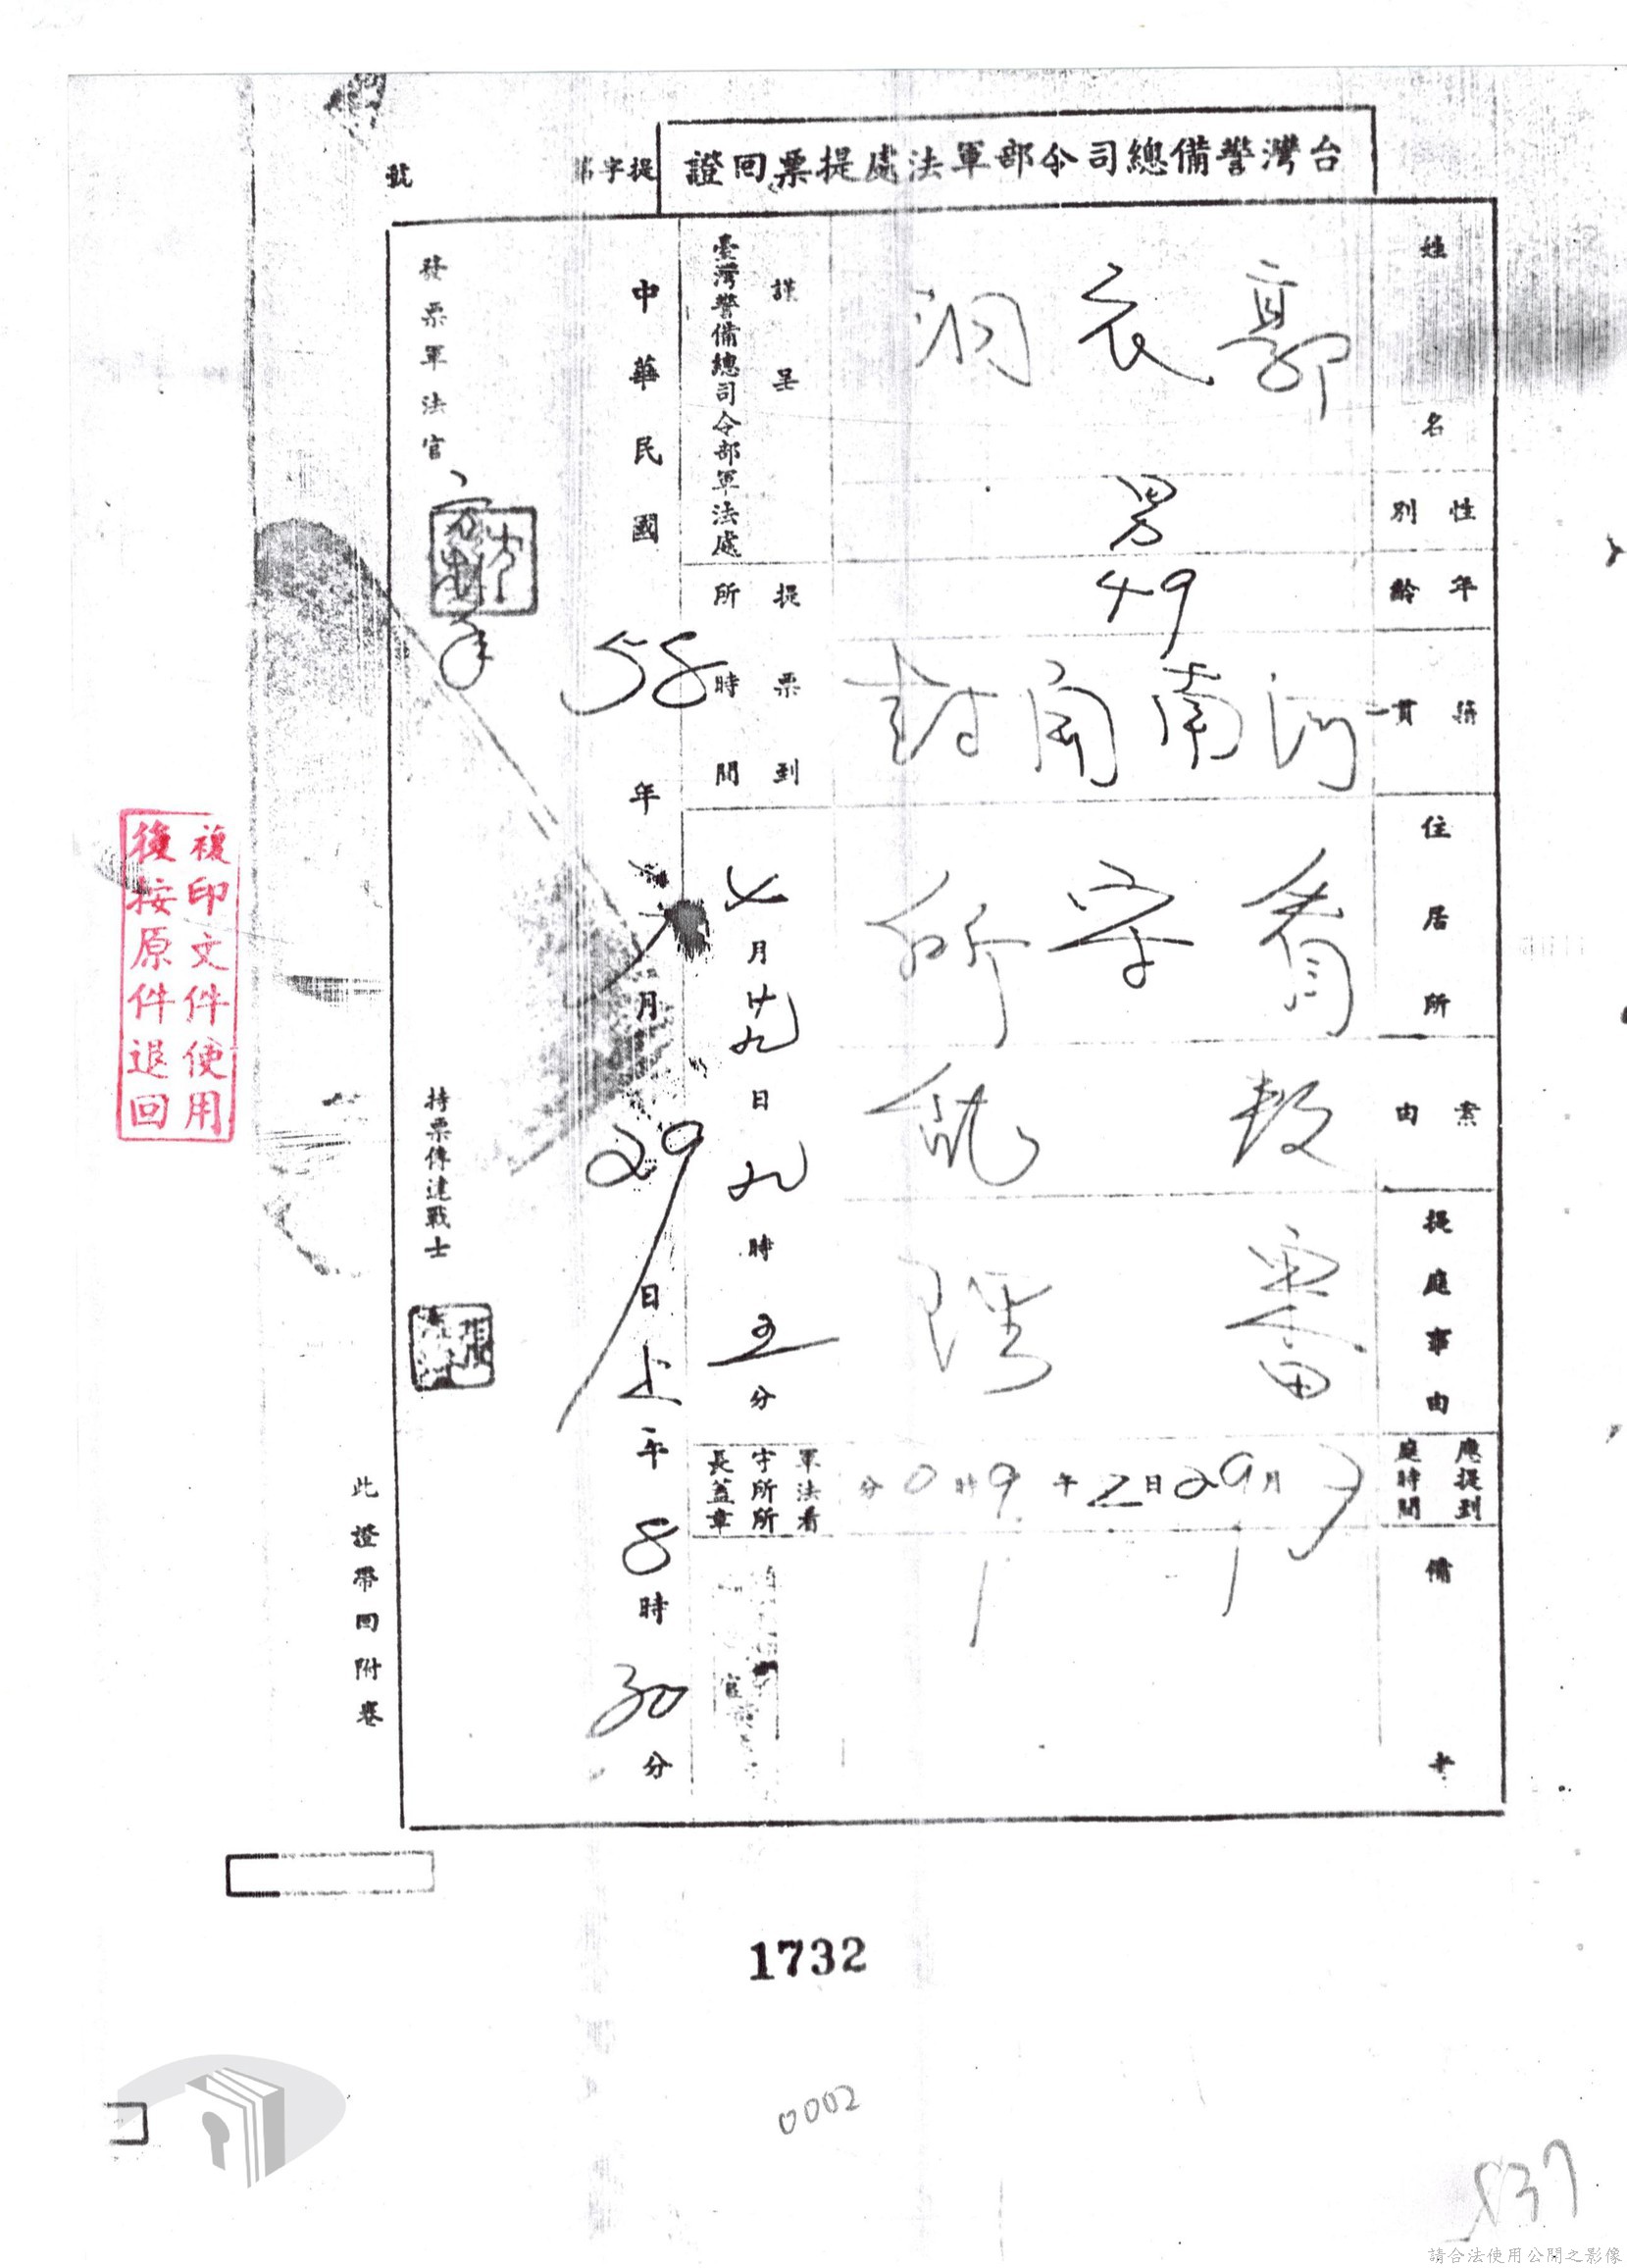 台灣警備總司令部軍法處提票回證
提字第
號
姓名
郭衣洞
性別
男
年齡
49
籍貫
河南開封
住居所
看守所
案由
叛亂
提庭事由
審理
應提到庭時間
7月29日上午9時0分
備
謹呈
臺灣警備總司令部軍法處
提票到所時間
七月廿九日九時五分
軍法看守所所長蓋章
中華民國58年
月29日上午8時30分
發票軍法官
持票傳達戰士
此證帶回附卷
複印文件使用
後按原件退回
1732
0002
537
請合法使用公開之影像